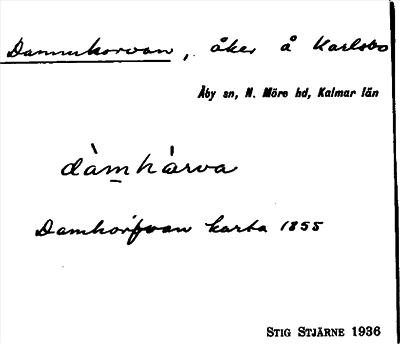 Dammkorvan, åker å Karlsbo
Åby sn, N. Möre hd, Kalmar län
dàmhàrva
Damhorfvan karta 1855
STIG STJÄRNE 1936